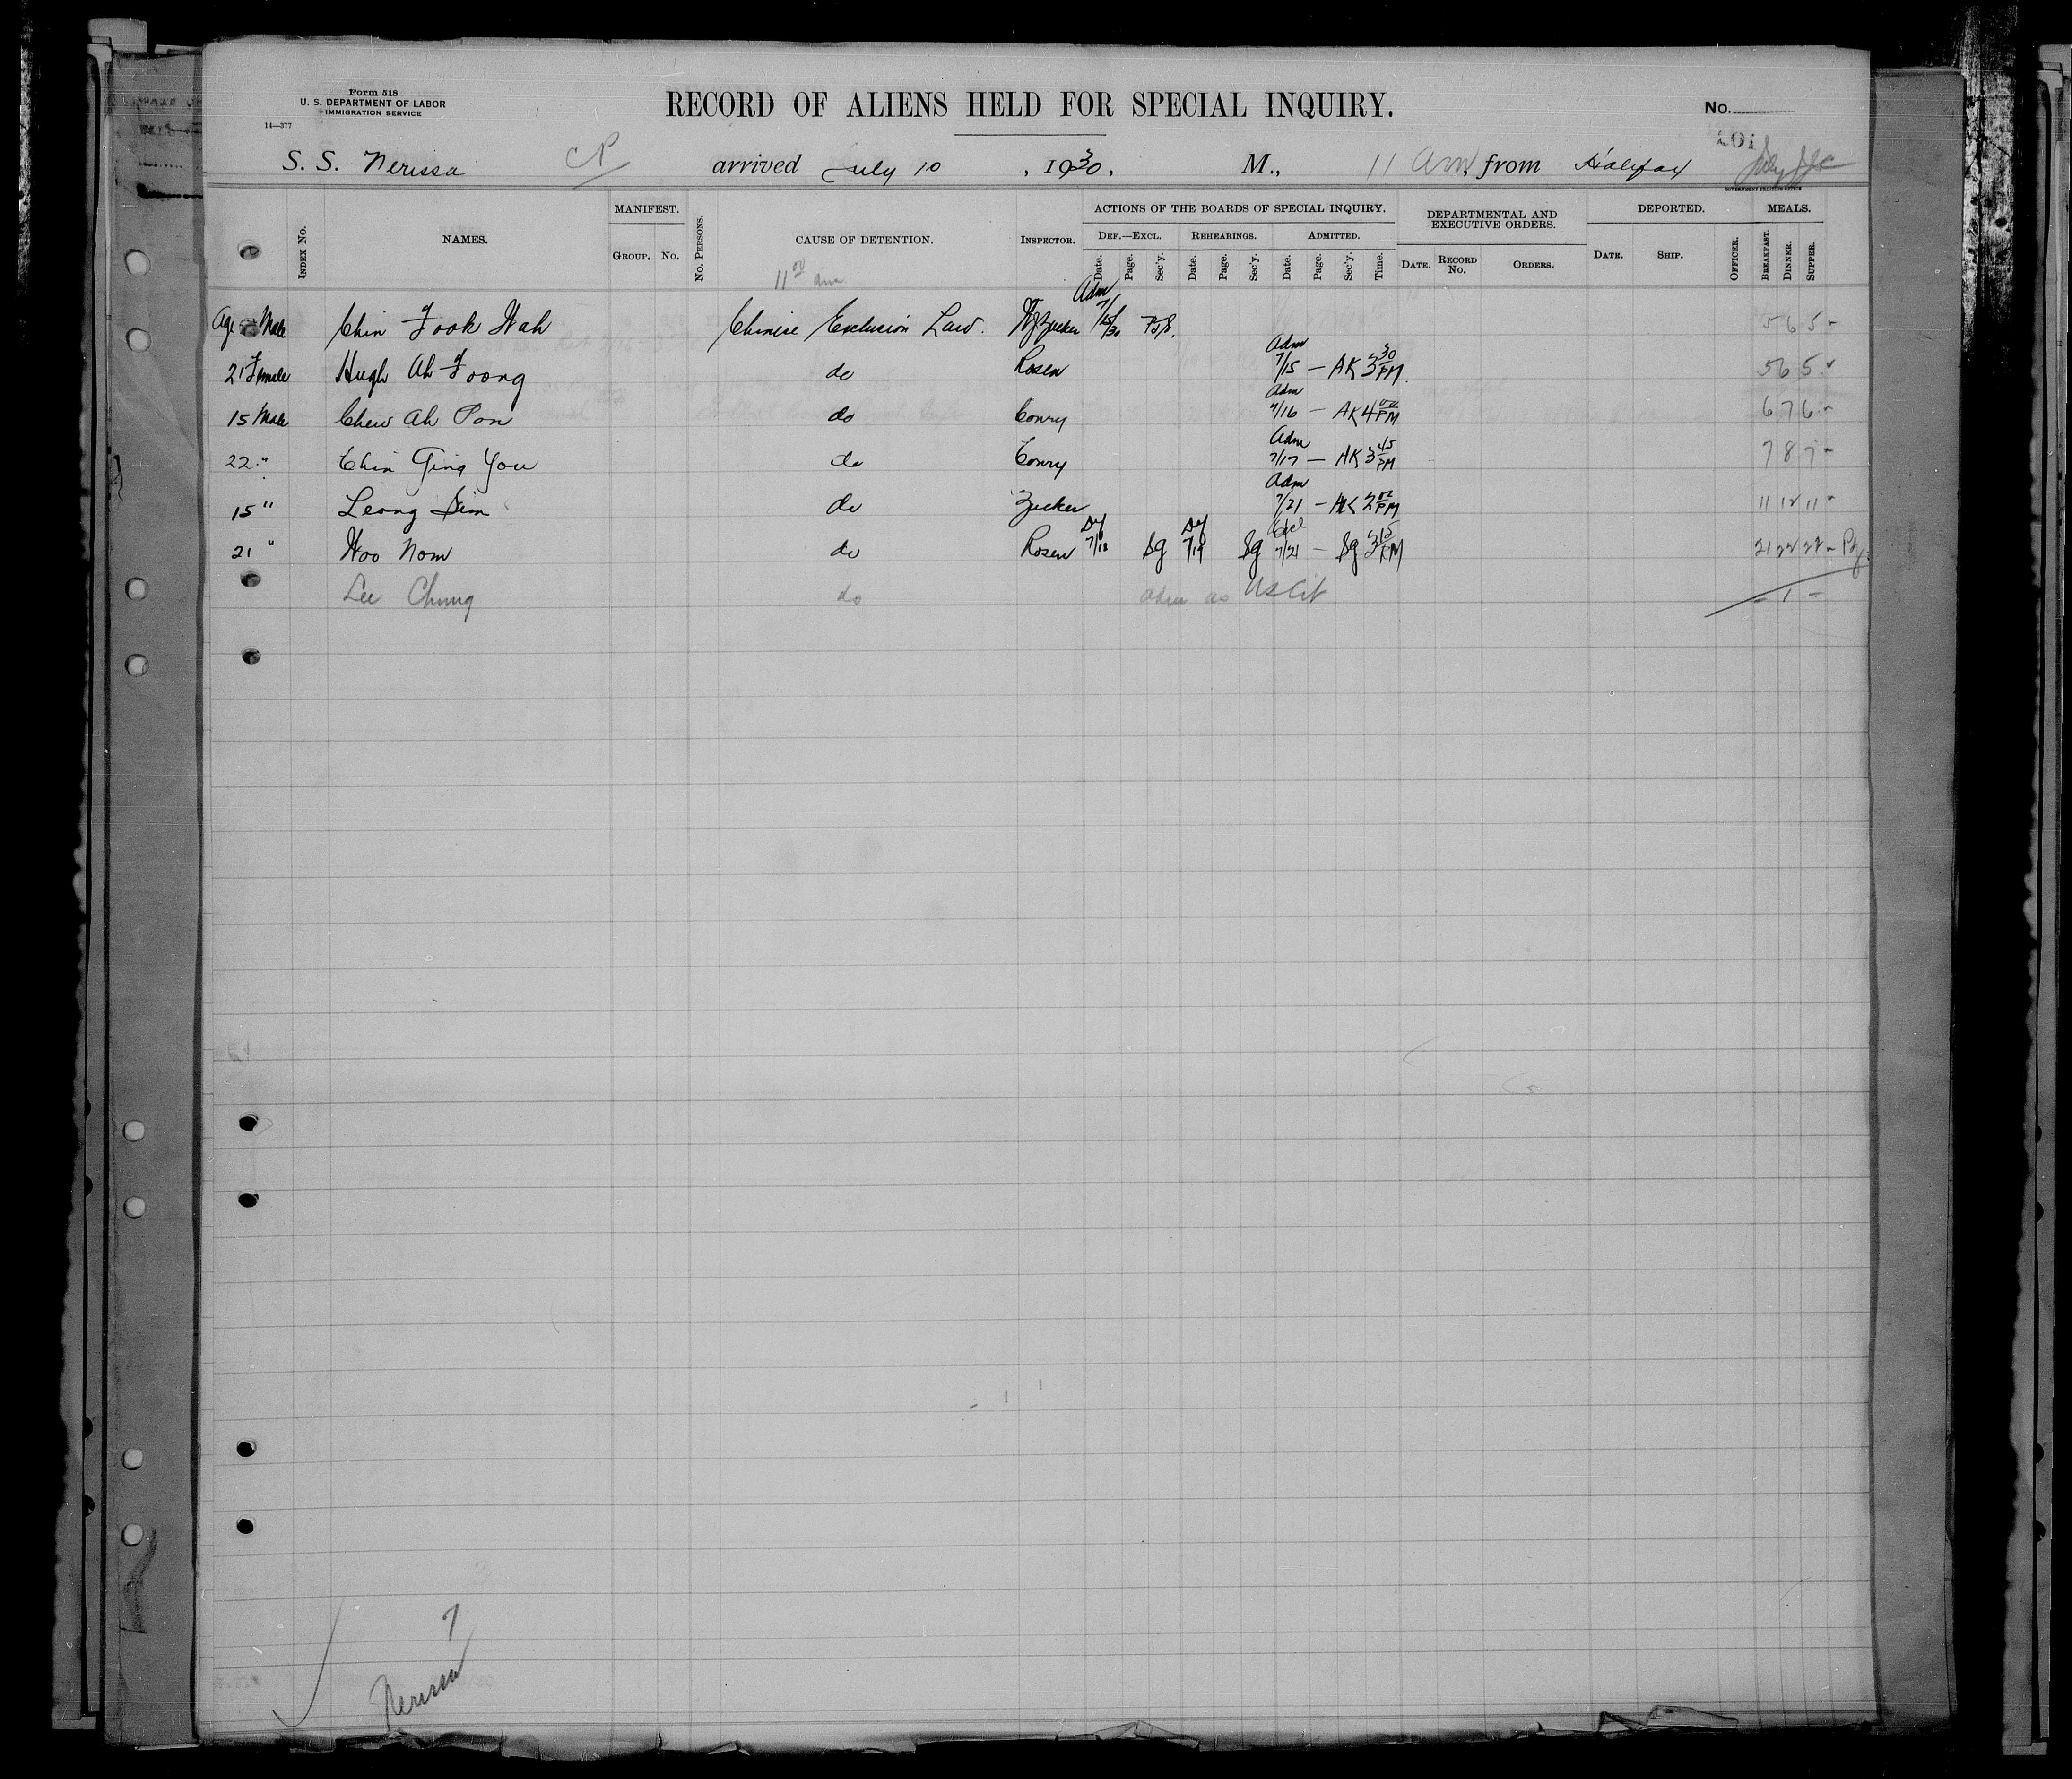 Form 518
U. S. DEPARTMENT OF LABOR
IMMIGRATION SERVICE
14—377
RECORD OF ALIENS HELD FOR SPECIAL INQUIRY.
No.
201
S. S. Nerissa CP arrived July 10, 1930, M., 11 am from Halifax
GOVERNMENT PRINTING OFFICE
INDEX No. NAMES. MANIFEST. GROUP. No. No. PERSONS. CAUSE OF DETENTION. INSPECTOR. ACTIONS OF THE BOARDS OF SPECIAL INQUIRY. DEF.—EXCL. REHEARINGS. ADMITTED. DEPARTMENTAL AND EXECUTIVE ORDERS. DEPORTED. MEALS.
Date. Page. Sec'y. Date. Page. Sec'y. Date. Page. Sec'y. Time. DATE. RECORD No. ORDERS. DATE. SHIP. OFFICER. BREAKFAST. DINNER. SUPPER.
11 00 am
Age Male Chin Fook Wah Chinese Exclusion Law. Zucker Adm 7/15/30 5 6 5 -
21 Female Hugh Ah Foong do Rosen Adm 7/15 — AK 3 30 PM 5 6 5
15 Male Chew Ah Pon do Conry Adm 7/16 — AK 4 00 PM 6 7 6 -
22 " Chin Ging You do Conry Adm 7/17 — AK 3 45 PM 7 8 7 -
15 " Leong Sim do Zucker Adm 7/21 — AK 2 00 PM 11 12 11 -
21 " Woo Nom do Rosen Def 7/18 Sg Def 7/19 Sg 7/21 — Sg 3 15 PM 21 22 22 -
Lee Chung do adm as US Cit - 1 -
7
Nerissa